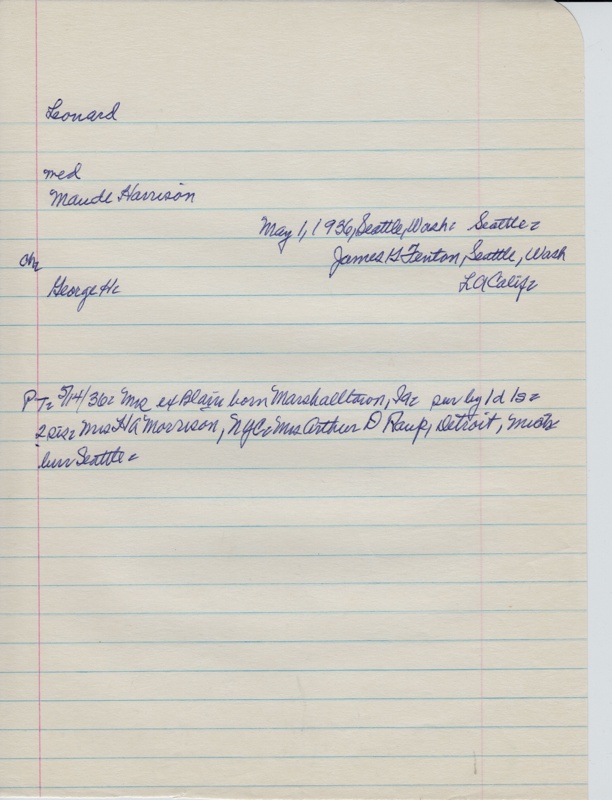 Leonard
med
Maude Harrison
May 1, 1936, Seattle, Wash. Seattle.
ch.
James G Fenton, Seattle, Wash
George H.
L A Calif.
P T. 5/14/36. ex Blain born Marshalltown, Ia. sur by 1 d 1 s.
2 sis. Mrs H A Morrison, NYC. Mrs Arthur D Raup, Detroit, Mich.
bur Seattle.